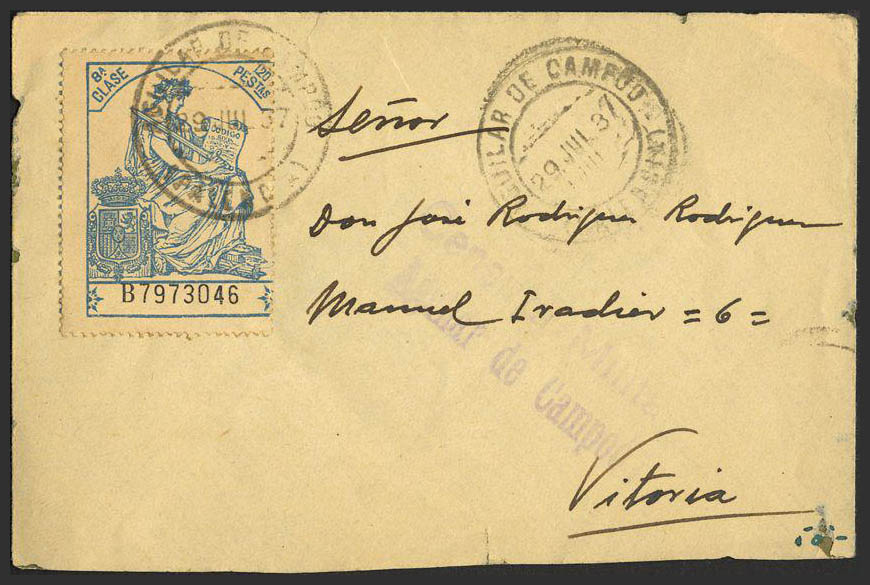 8ª CLASE
120 PESTAS
CODIGO
B7973046
AGUILAR DE CAMPOO
29 JUL 37
(PALENCIA)
AGUILAR DE CAMPOO
29 JUL 37
Señor
Don José Rodriguez Rodriguez
Manuel Iradier = 6 =
Censura Militar
Aguilar de Campoo
Vitoria